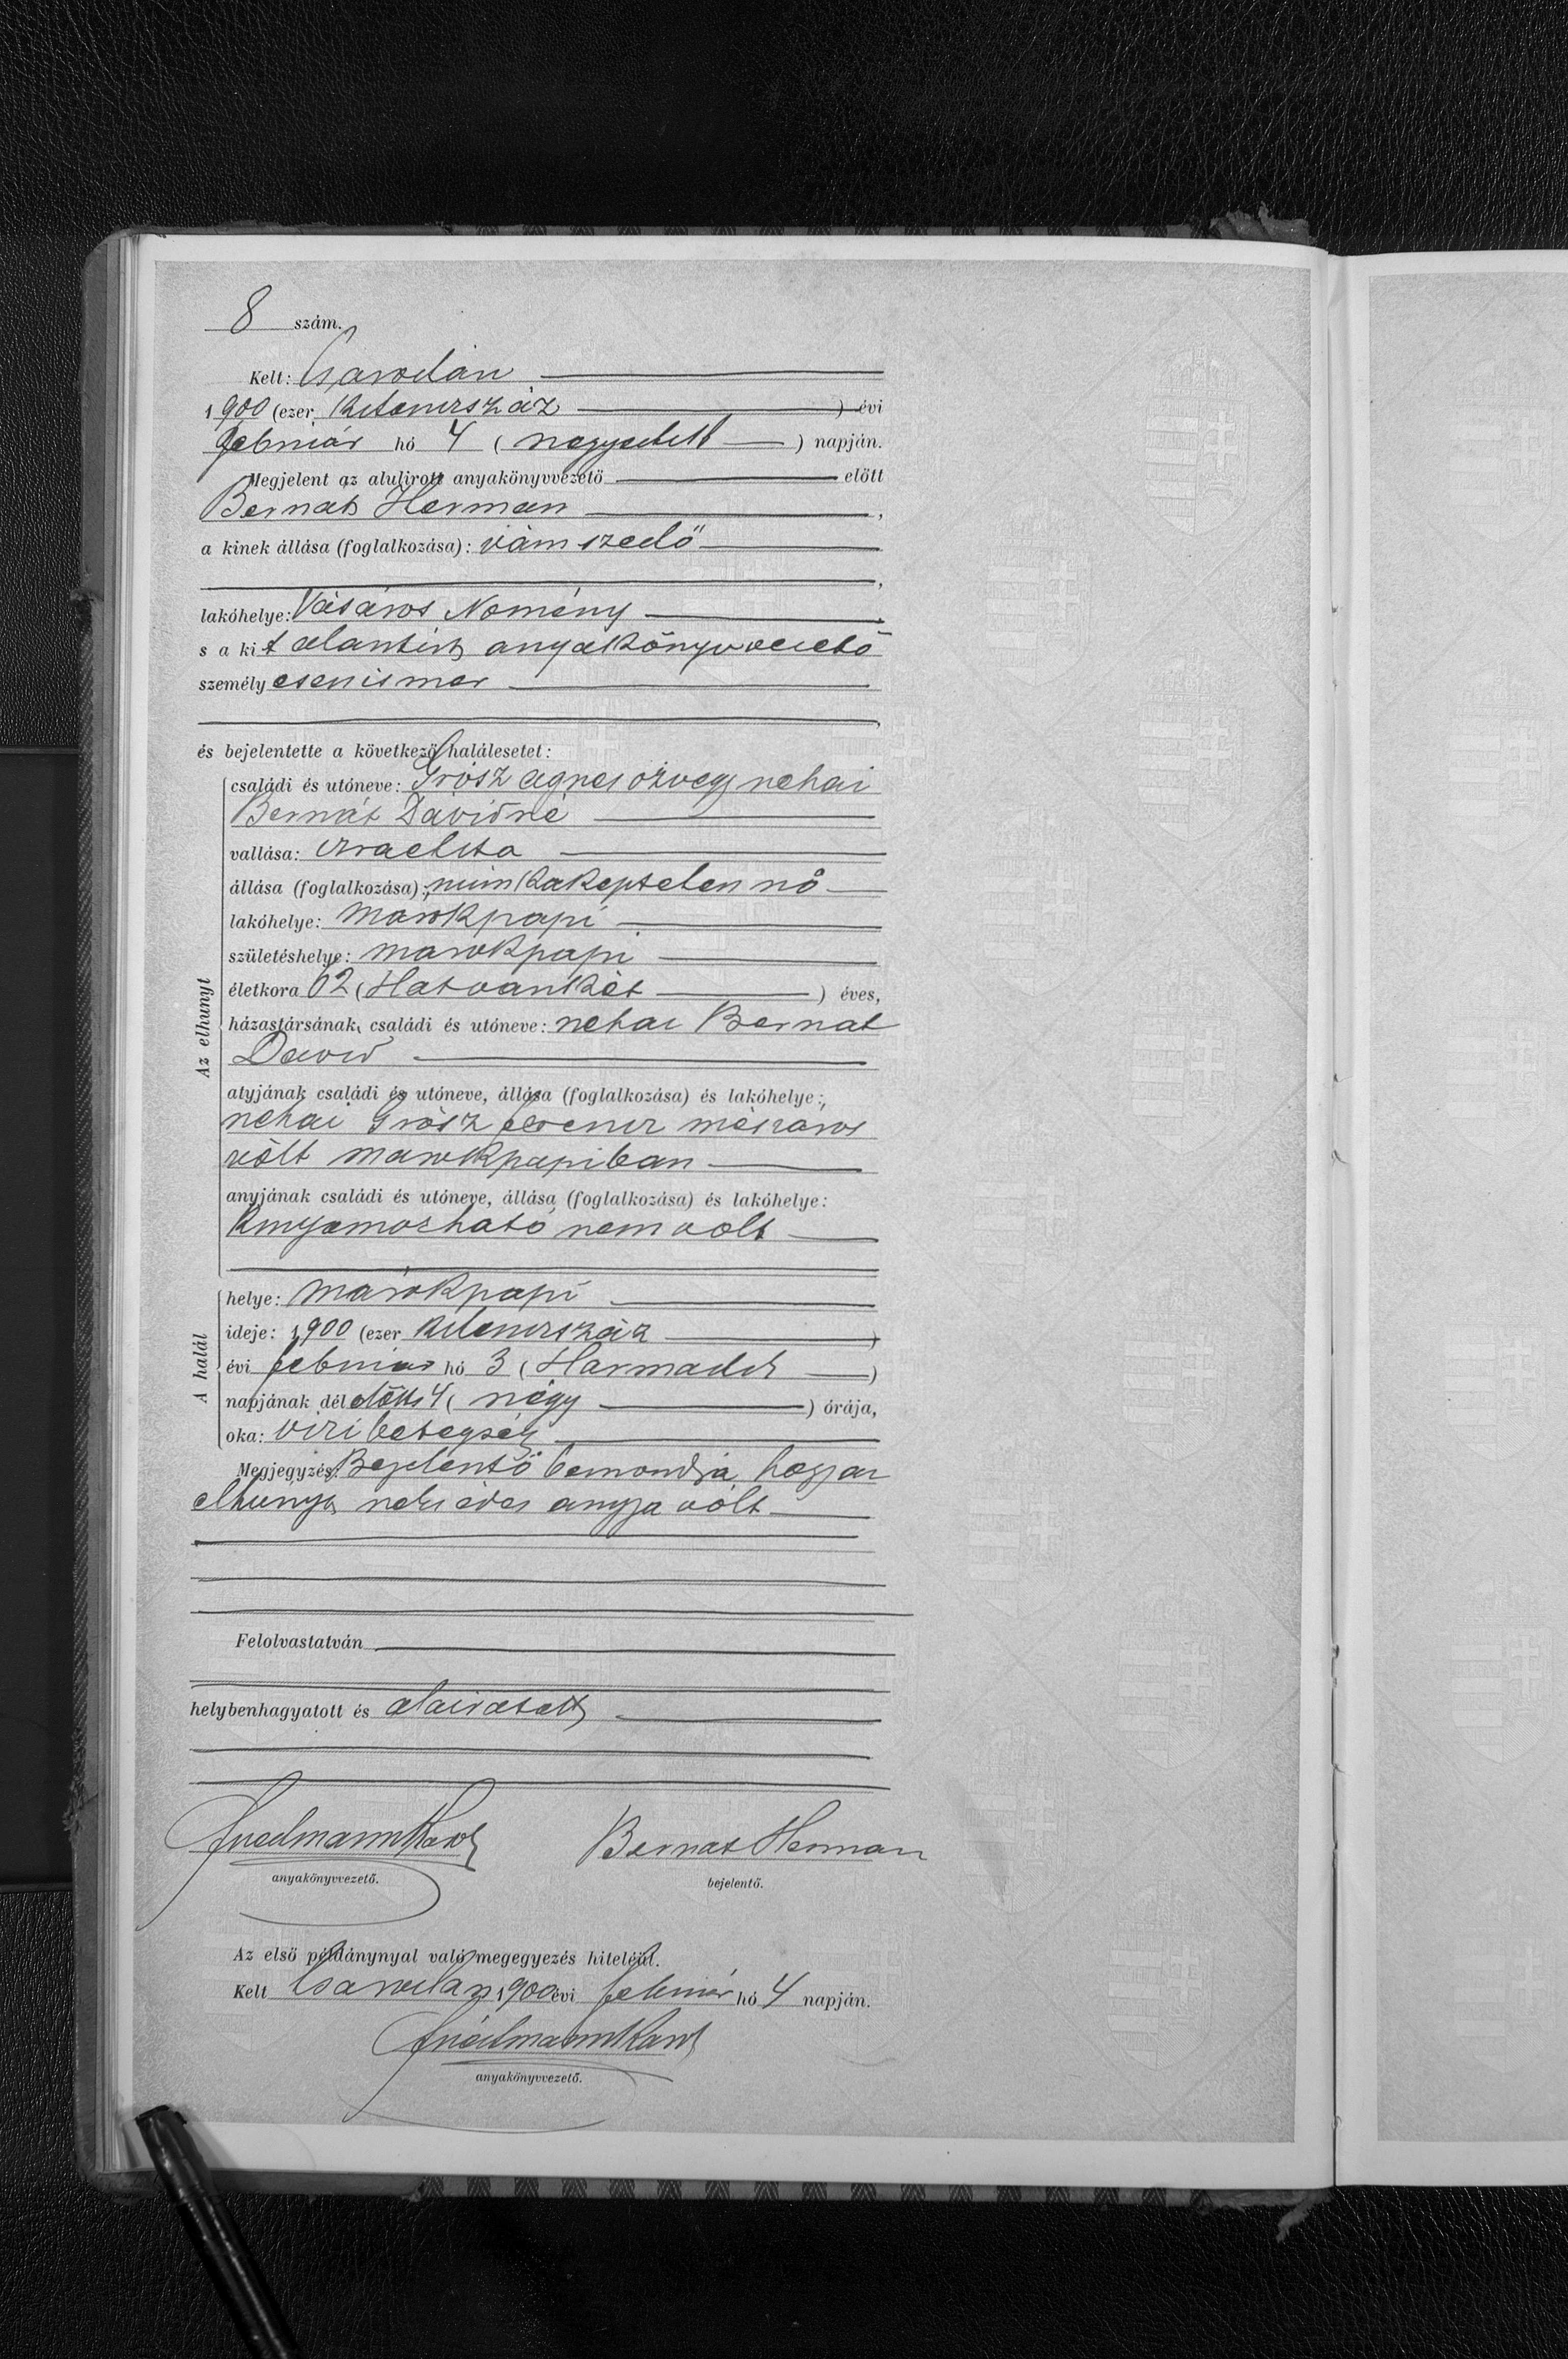 8 szám.
Kelt: Csarodán
1900 (ezer kilenczszáz) évi
február hó 4 (negyedik) napján.
Megjelent az alulirott anyakönyvvezető előtt
Bernát Herman,
a kinek állása (foglalkozása): vámszedő
lakóhelye: Vásáros Namény
s a kit alantirt anyakönyvvezető
személyesen ismer
és bejelentette a következő halálesetet:
Az elhunyt
családi és utóneve: Grósz Ágnes özvegy nehai
Bernát Dávidné
vallása: izraelita
állása (foglalkozása): munkaképtelen nő
lakóhelye: Márokpapi
születéshelye: Márokpapi
életkora 62 (Hatvankét) éves,
házastársának családi és utóneve: nehai Bernát
David
atyjának családi és utóneve, állása (foglalkozása) és lakóhelye:
nehai Grósz Ferencz mészáros
vólt Márokpapiban
anyjának családi és utóneve, állása (foglalkozása) és lakóhelye:
kinyomozható nem volt
A halál
helye: Márokpapi
ideje: 1900 (ezer kilenczszáz)
évi február hó 3 (Harmadik)
napjának délelőtt 4 (négy) órája,
oka: vízibetegség
Megjegyzés: Bejelentő bemondja, hogy az
elhunyt neki édes anyja vólt
Felolvastatván
helybenhagyatott és aláiratott
Bernat Herman
anyakönyvvezető. bejelentő.
Az első példánynyal való megegyezés hiteléül.
Kelt Csarodán 1900 évi február hó 4 napján.
anyakönyvvezető.